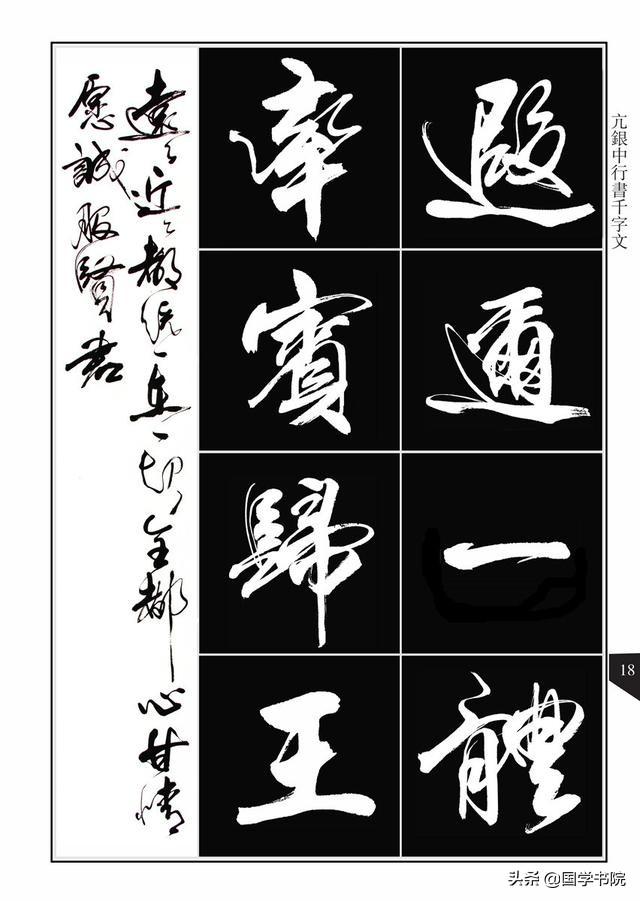 亢銀中行書千字文
遐邇一體
率賓歸王
遠々近々都統一在一起全都心甘情
愿誠服賢君
18
头条 @国学书院